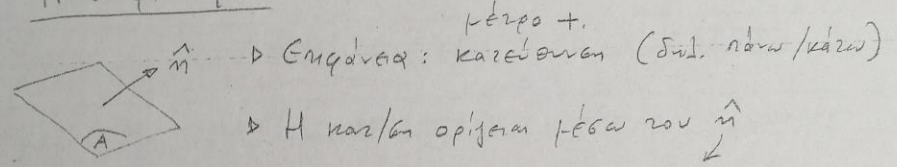 μέτρο +.
n̂ ▷ Επιφάνεια: κατεύθυνση (δηλ. πάνω/κάτω)
A ▷ Η κατ/ση ορίζεται μέσω του n̂